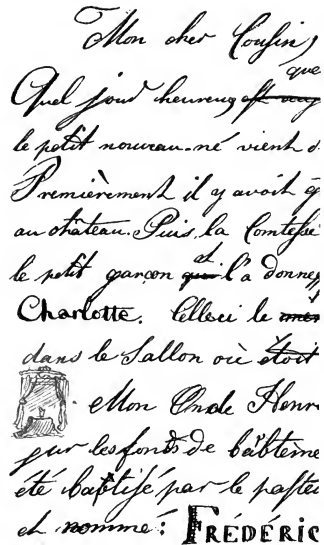 Mon cher Cousin,
que
Quel jour heureux
le petit nouveau-né vient d
Premièrement il y avoit
au château. Puis, la Comtesse
et
le petit garçon qui l'a donne
Charlotte. Celleci le
dans le Sallon où étoit
Mon Oncle Henri
sur les fonds de bâbteme
été baptisé par le paste
et nommé: FRÉDÉRIC